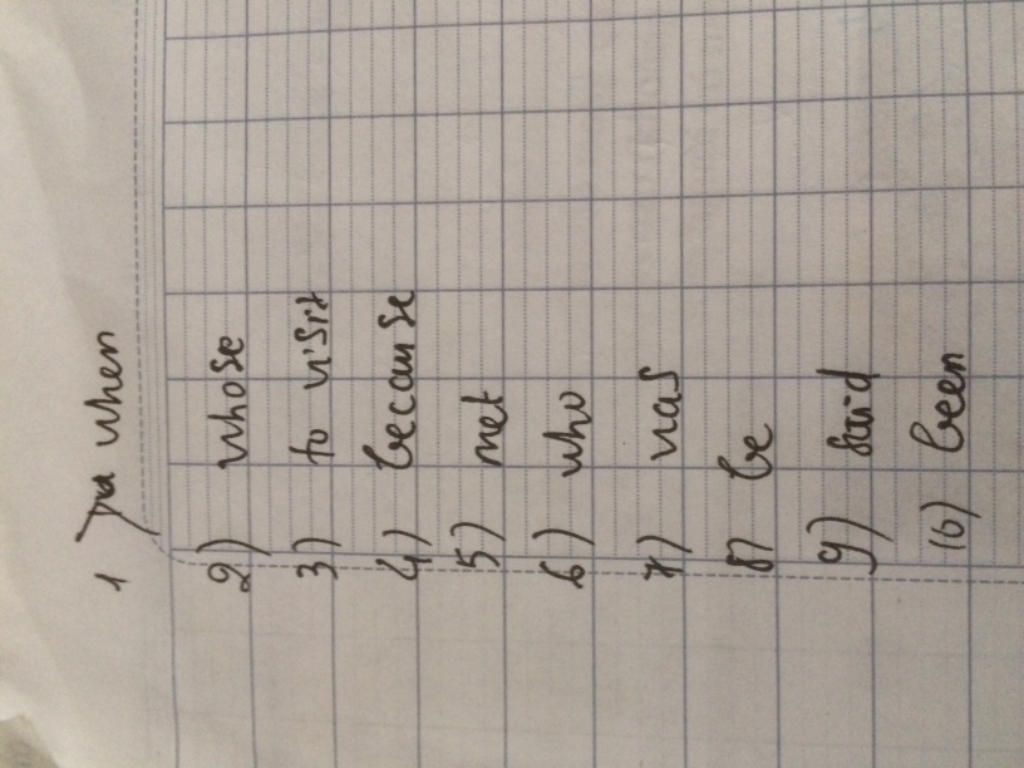 1 when
2) whose
3) to visit
4) because
5) met
6) who
7) was
8) be
9) said
10) been